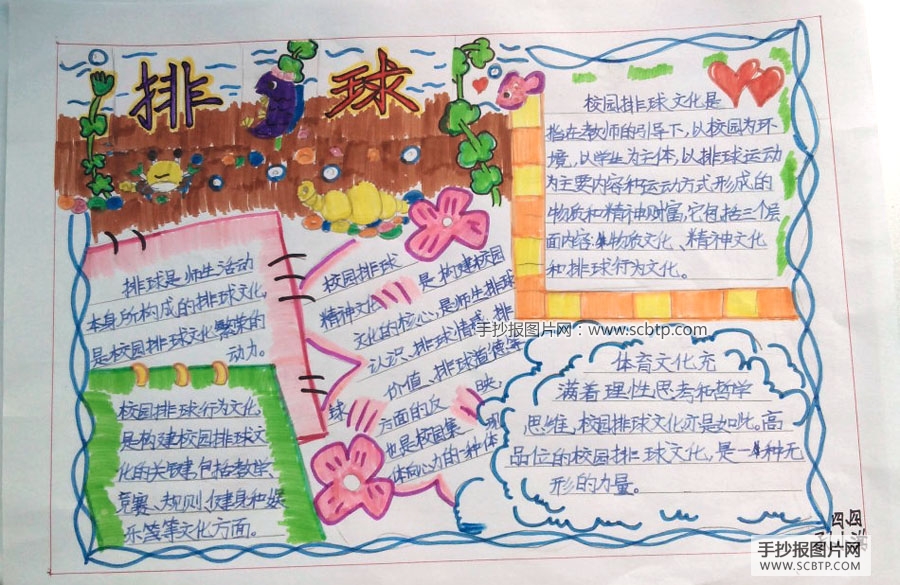 排球
校园排球文化是
指在教师的引导下,以校园为环
境,以学生为主体,以排球运动
为主要内容和运动方式形成的
物质和精神财富,它包括三个层
面内容:物质文化、精神文化
和排球行为文化。
排球是师生活动
本身所构成的排球文化,
是校园排球文化繁荣的
动力。
校园排球
精神文化 是构建校园
文化的核心,是师生排球
认识、排球情感、排
球价值、排球道德等
方面的反映,
也是校园集
体向心力的一种体现
校园排球行为文化
是构建校园排球文
化的关键,包括教学
竞赛、规则、健身和娱
乐等文化方面。
体育文化充
满着理性思考和哲学
思维,校园排球文化亦是如此。高
品位的校园排球文化,是一种无
形的力量。
手抄报图片网:www.scbtp.com
手抄报图片网
WWW.SCBTP.COM